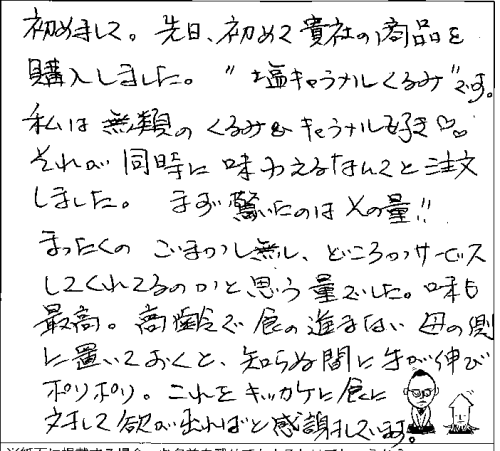 初めまして。先日、初めて貴社の商品を
購入しました。"塩キャラメルくるみ"です。
私は無類のくるみ&キャラメル好き♡♡
それが同時に味わえるなんてと注文
しました。まず驚いたのはその量!!
まったくのごまかし無し、どころかサービス
してくれてるのかと思う量でした。味も
最高。高齢で食の進まない母の側
に置いておくと、知らぬ間に手が伸び
ポリポリ。これをキッカケに食に
対して欲が出ればと感謝しています。